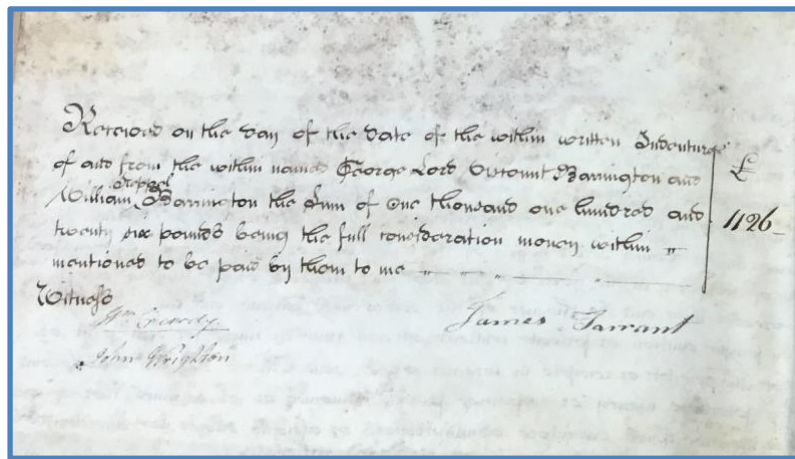 Received on the day of the date of the within written Indenture
of and from the within named George Lord Viscount Barrington and
William Keppel Barrington the Sum of One thousand one hundred and
twenty six pounds being the full consideration money within "
mentioned to be paid by them to me "
£
1126
Witness
Wm Crowdy
John Wrighton
James Tarrant